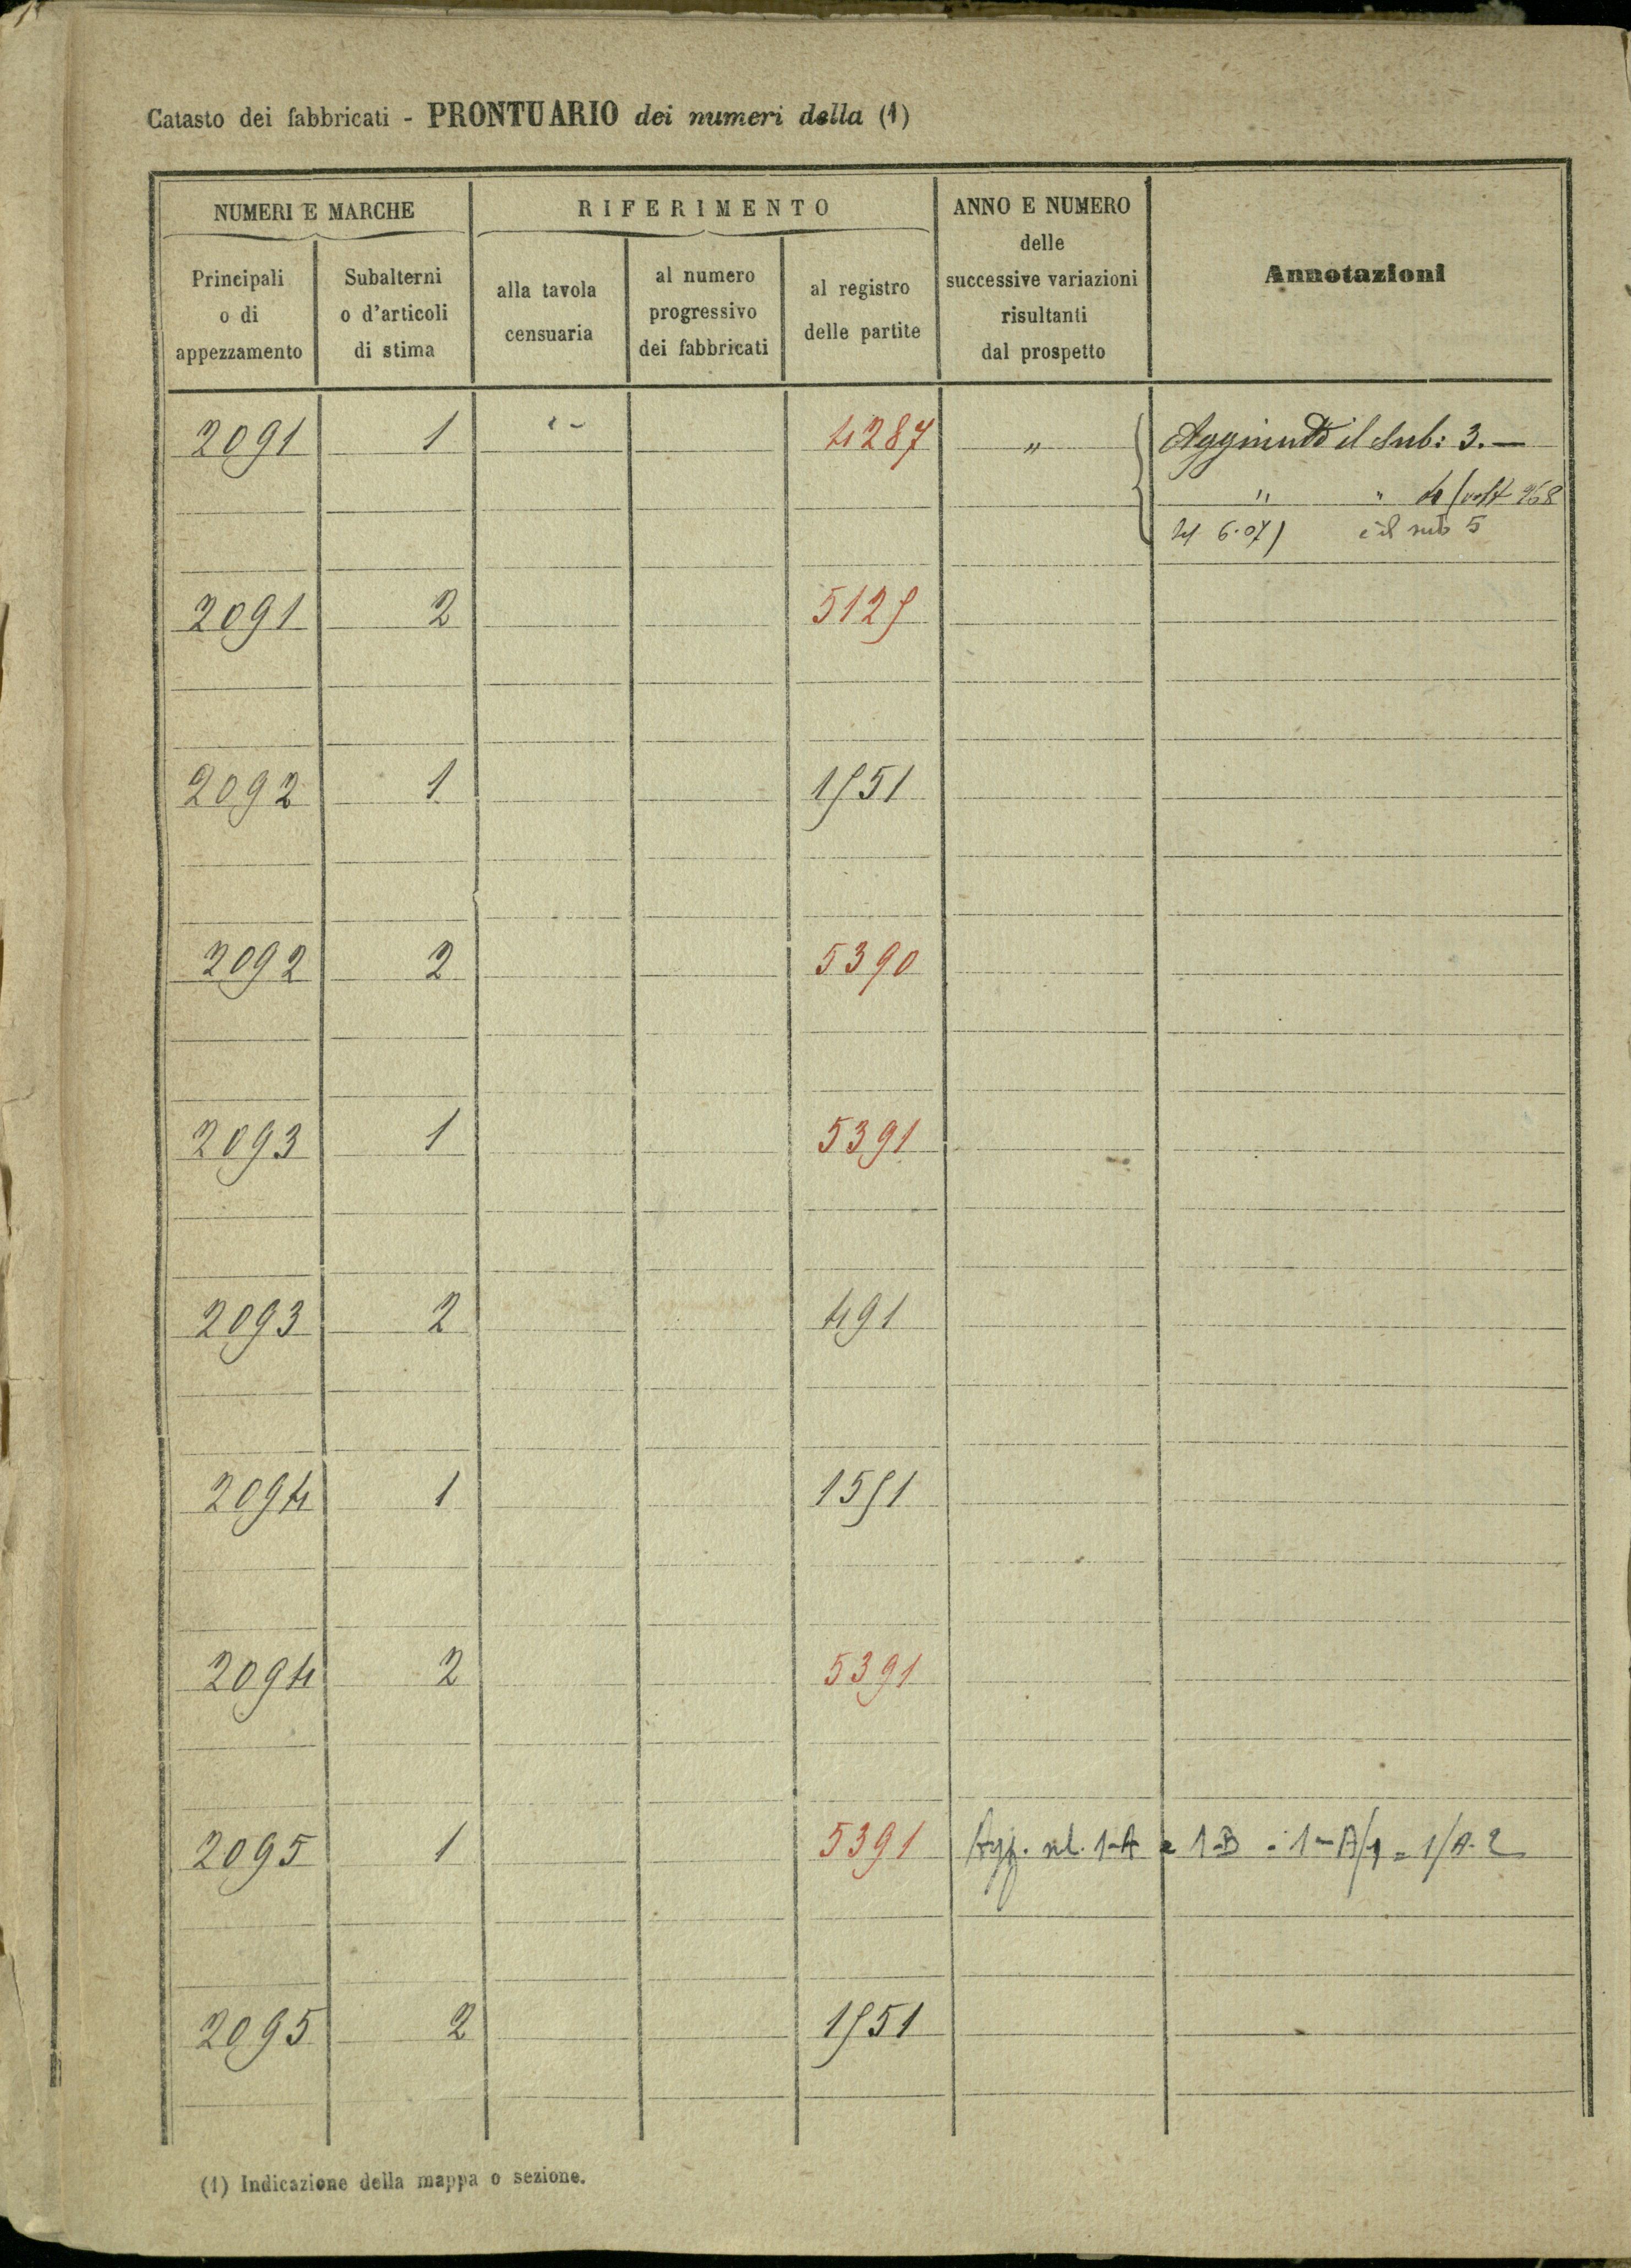 Catasto dei fabbricati - PRONTUARIO dei numeri della (1)
NUMERI E MARCHE
RIFERIMENTO
ANNO E NUMERO
delle
successive variazioni
risultanti
dal prospetto
Annotazioni
Principali
o di
appezzamento
Subalterni
o d'articoli
di stima
alla tavola
censuaria
al numero
progressivo
dei fabbricati
al registro
delle partite
2091 1 4287 " Aggiunto il Sub: 3. —
" " 4
6.07) e il sub 5
2091 2 5125
2092 1 1551
2092 2 5390
2093 1 5391
2093 2 491
2094 1 1551
2094 2 5391
2095 1 5391 1-A e 1-B
2095 2 1551
(1) Indicazione della mappa o sezione.